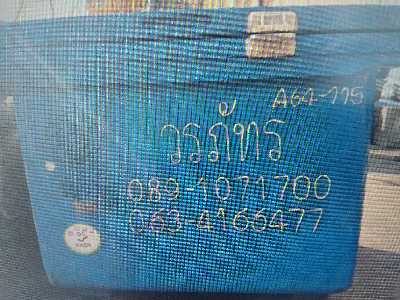 A64-115
วรภัทร
089-1071700
063-4166477